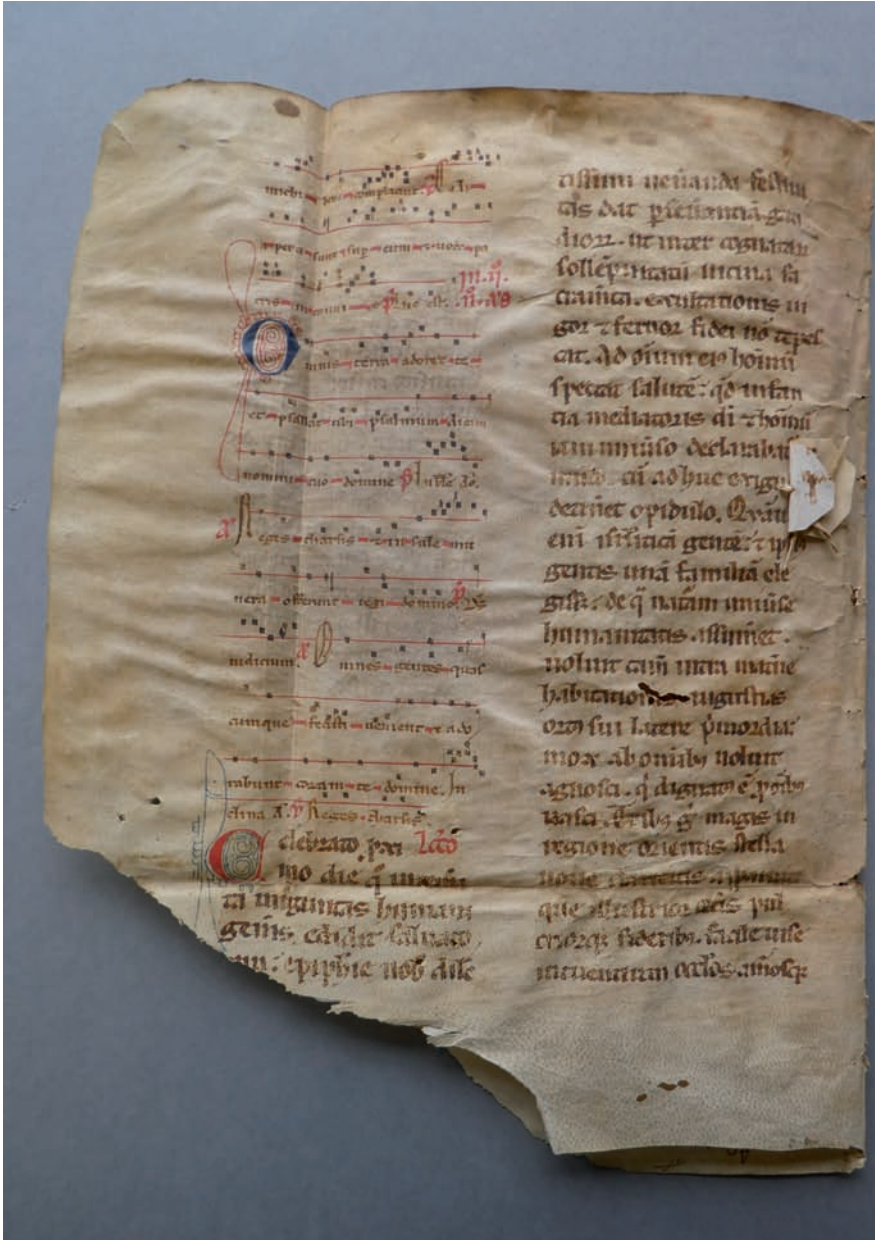 michi bene complacuit. Celi
aperti sunt sup eum et vox pa
tris
Omnis terra adoret te
et psallat tibi psalmum dicat
nomini tuo domine
Reges tharsis et insule mu
nera offerent regi domino. Ds
iudicium. Omnes gentes quas
cumque fecisti venient et ado
rabunt coram te domine. In
clina Reges tharsis.
Celebrato pxi Lcto
mo die q̄ intem̄
ta uirginitas humani
gen̄is edidit saluato
epiphie nob dile
tissimi ueñanda festiui
tas dat pseuerantiā gau
dior. ut inter cognatar
sollepnitatū uicina sa
cram̄ta. exultationis ui
gor et feruor fidei nō tepes
cat. Ad oīum eī hominū
spectat salutē. qd infan
tia mediatoris dī et hominū
iam uniuso declarabat
mūdo. cū adhuc exigu
detinet opidulo. Quāuis
enī isrl̄iticā gentē et ipsi
gentis unā familiā ele
gisset. de q̄ natām uniuse
humanitatis assumet.
noluit tam̄ intra mat̄ne
habitationis angustias
ortus sui latere p̄mordia.
mox ab om̄ibus uoluit
agnosci. q̄ dignatus ē oīb
nasci. Tribus g̊ magis in
regione orientis stella
noue claritatis apparuit
que illustrior cet̄is pul
chriorq sideribus. facile i se
intuentium oclos. aīosq